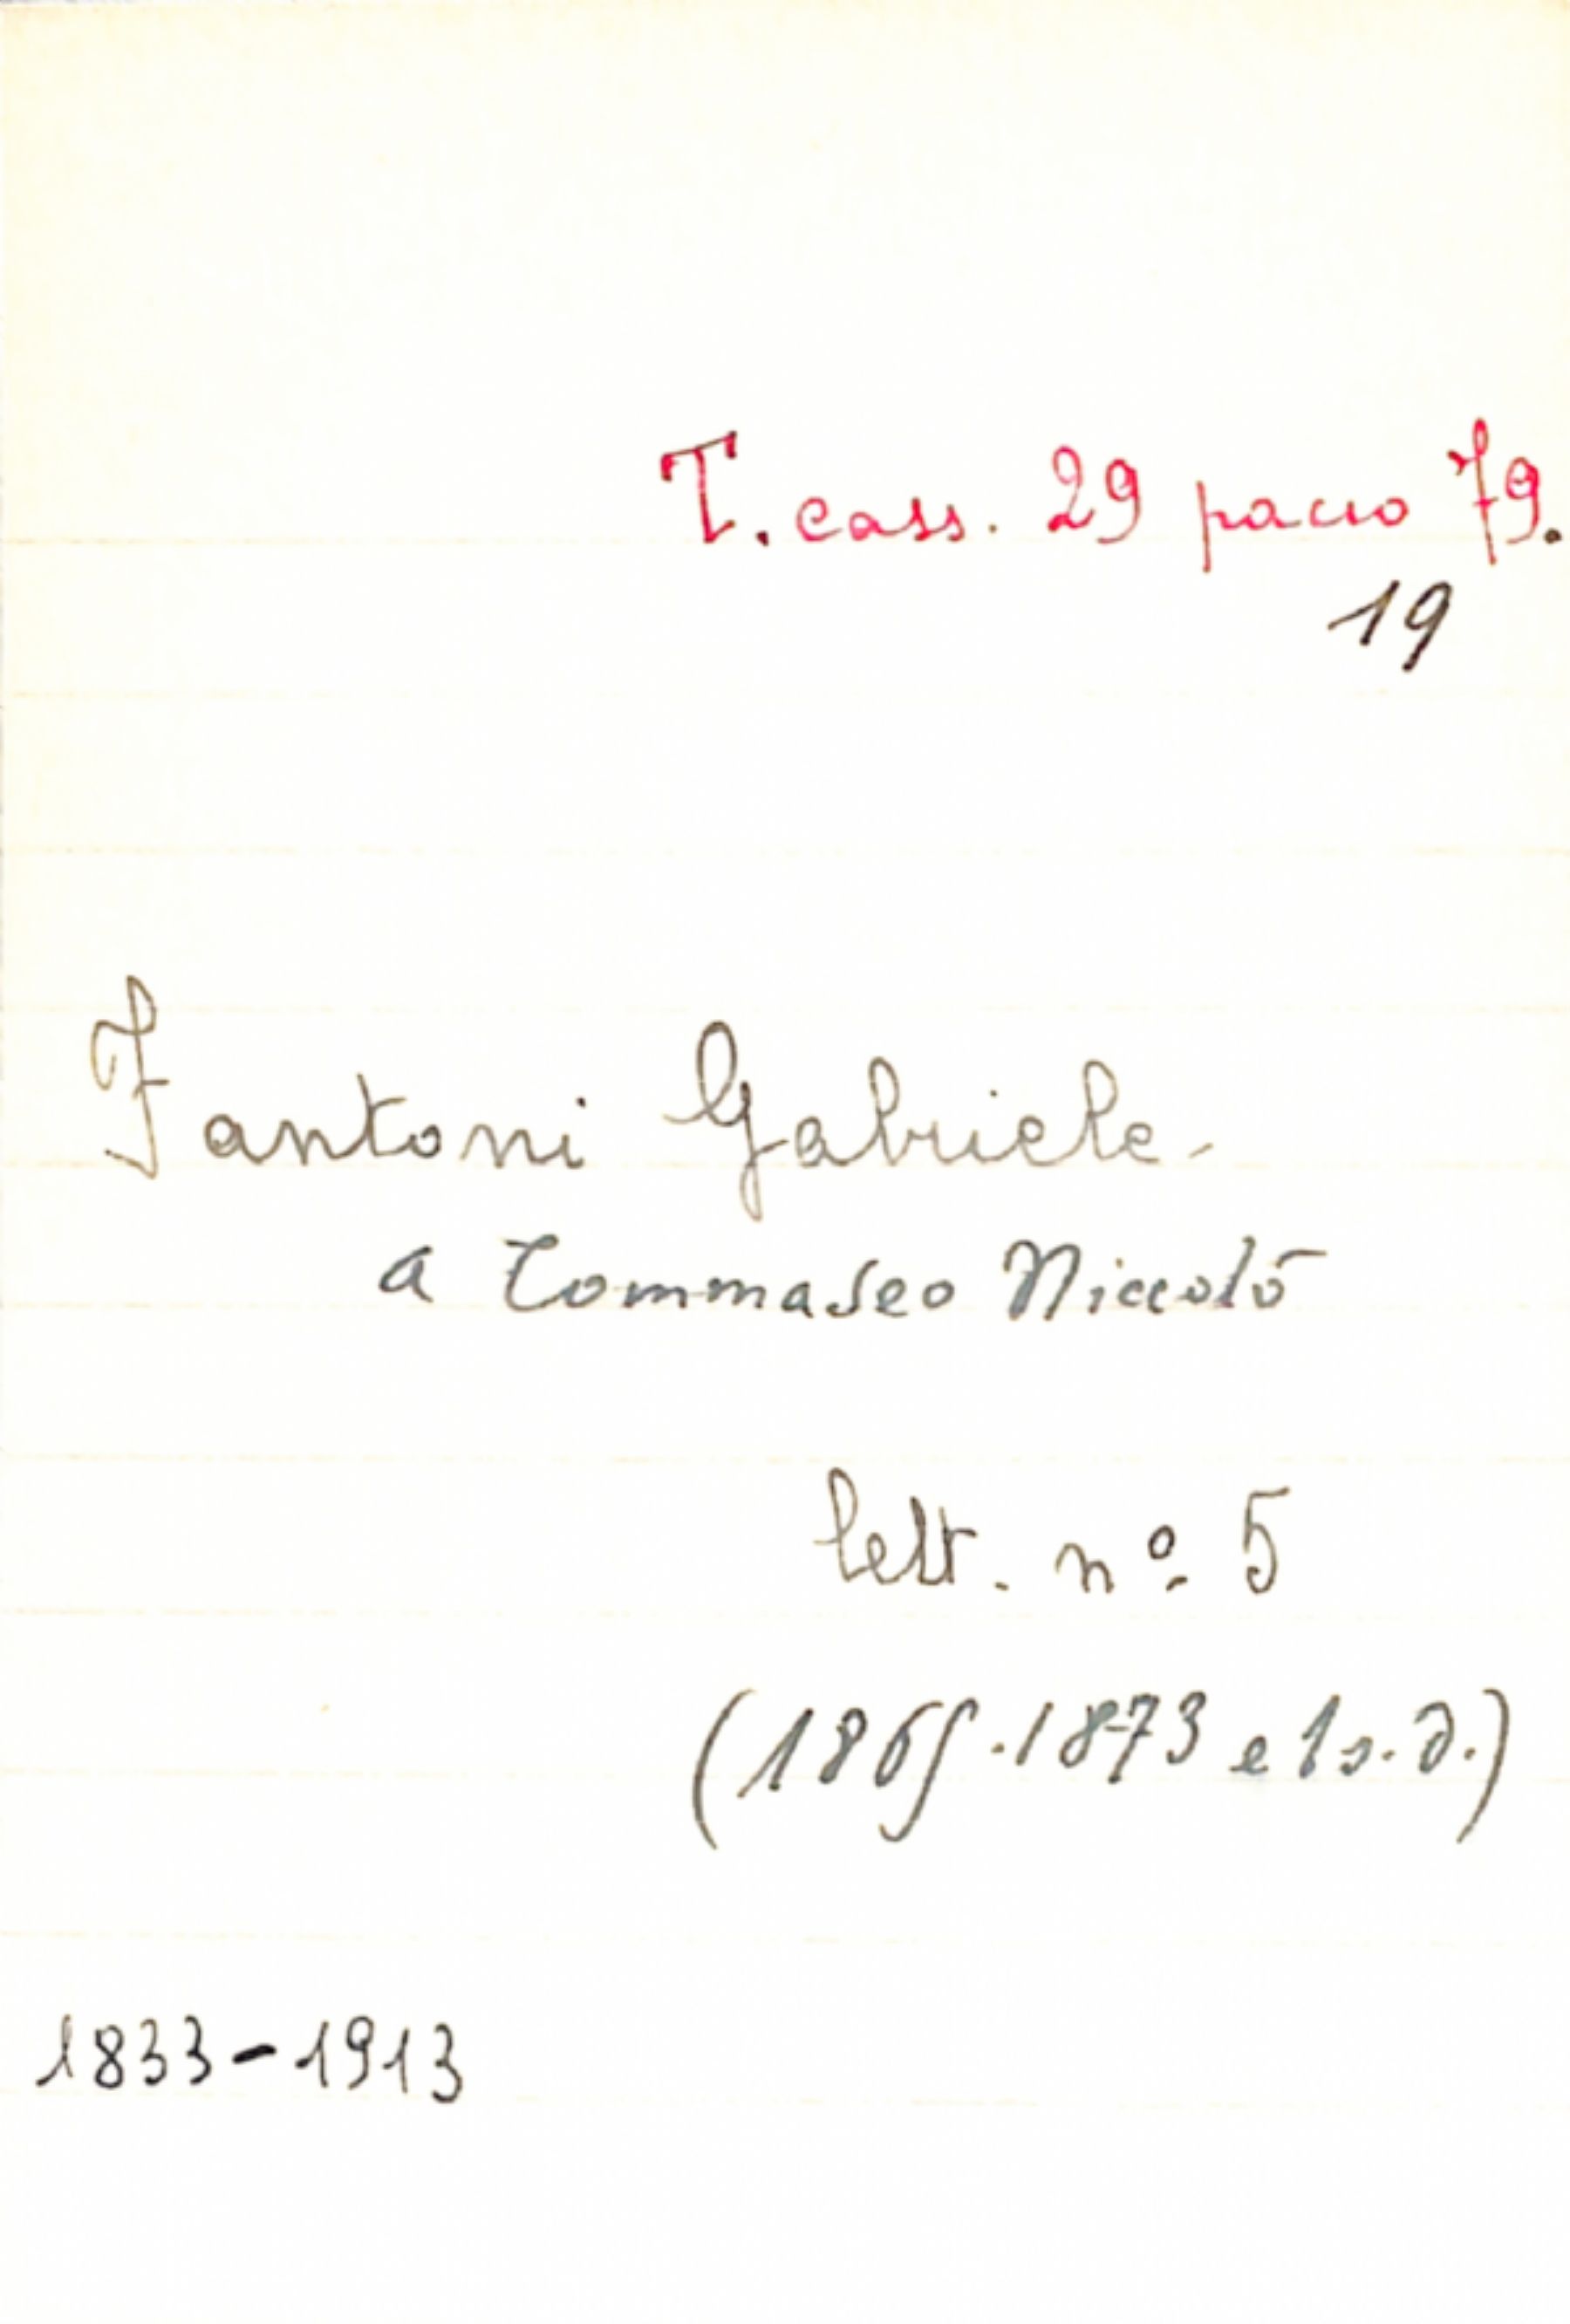 T. cass. 29 pacco 79.
19
Fantoni Gabriele.
a Tommaseo Niccolò
lett. nº 5
(1865.1873 e 1 s.d.)
1833-1913